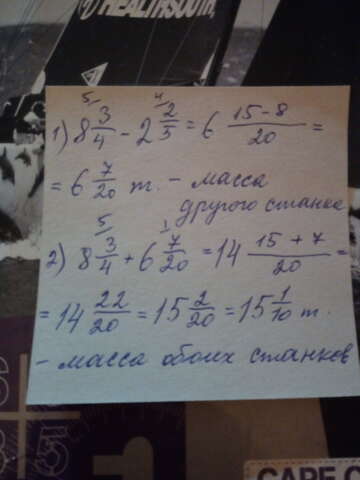 HEALTHSOUTH
1) 8 3/4 - 2 2/5 = 6 (15-8)/20 =
= 6 7/20 т. - масса
другого станка
2) 8 3/4 + 6 7/20 = 14 (15+7)/20 =
= 14 22/20 = 15 2/20 = 15 1/10 т.
- масса обоих станков
CAPE C